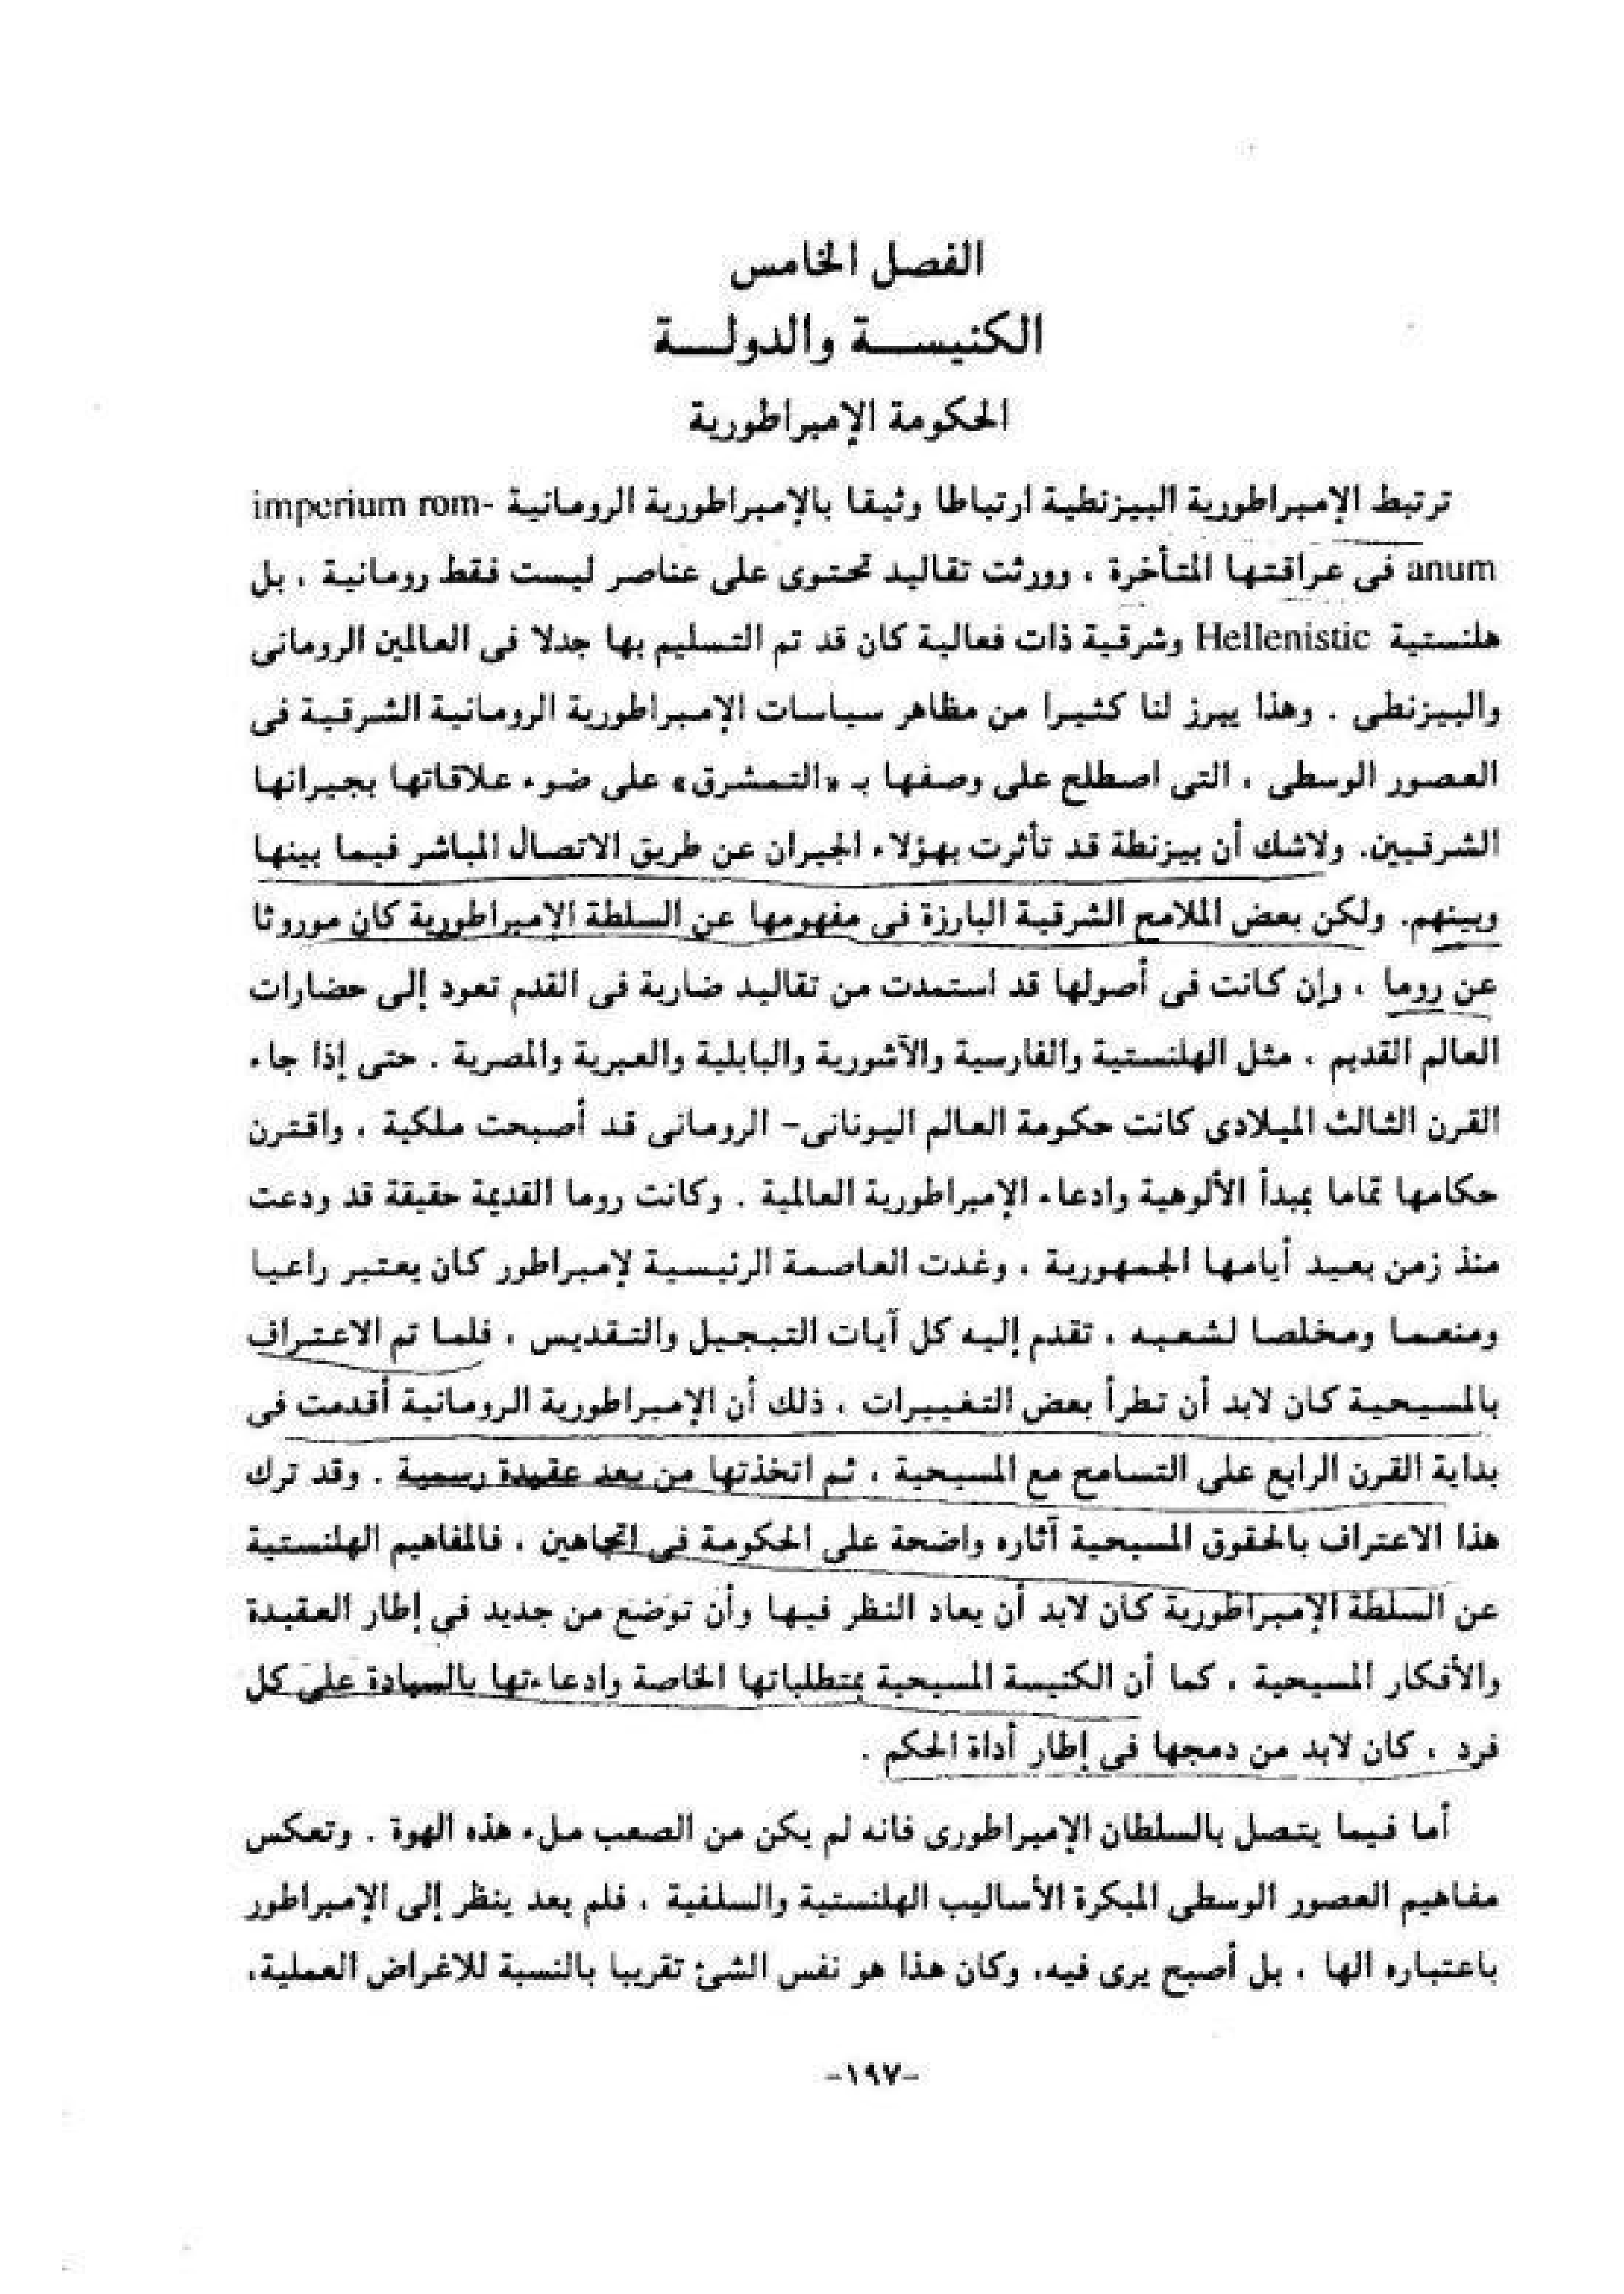 الفصل الخامس
الكنيســـة والدولـــة
الحكومة الإمبراطورية
ترتبط الإمبراطورية البيزنطية ارتباطا وثيقا بالإمبراطورية الرومانية imperium rom-
anum فى عراقتها المتأخرة ، وورثت تقاليد تحتوى على عناصر ليست فقط رومانية ، بل
هلنستية Hellenistic وشرقية ذات فعالية كان قد تم التسليم بها جدلا فى العالمين الرومانى
والبيزنطى . وهذا يبرز لنا كثيرا من مظاهر سياسات الإمبراطورية الرومانية الشرقية فى
العصور الوسطى ، التى اصطلح على وصفها بـ «التمشرق» على ضوء علاقاتها بجيرانها
الشرقيين. ولاشك أن بيزنطة قد تأثرت بهؤلاء الجيران عن طريق الاتصال المباشر فيما بينها
وبينهم. ولكن بعض الملامح الشرقية البارزة فى مفهومها عن السلطة الإمبراطورية كان موروثا
عن روما ، وإن كانت فى أصولها قد استمدت من تقاليد ضاربة فى القدم تعود إلى حضارات
العالم القديم ، مثل الهلنستية والفارسية والآشورية والبابلية والعبرية والمصرية . حتى إذا جاء
القرن الثالث الميلادى كانت حكومة العالم اليونانى- الرومانى قد أصبحت ملكية ، واقترن
حكامها تماما بمبدأ الألوهية وادعاء الإمبراطورية العالمية . وكانت روما القديمة حقيقة قد ودعت
منذ زمن بعيد أيامها الجمهورية ، وغدت العاصمة الرئيسية لإمبراطور كان يعتبر راعيا
ومنعما ومخلصا لشعبه ، تقدم إليه كل آيات التبجيل والتقديس ، فلما تم الاعتراف
بالمسيحية كان لابد أن تطرأ بعض التغييرات ، ذلك أن الإمبراطورية الرومانية أقدمت فى
بداية القرن الرابع على التسامح مع المسيحية ، ثم اتخذتها من بعد عقيدة رسمية . وقد ترك
هذا الاعتراف بالحقوق المسيحية آثاره واضحة على الحكومة فى اتجاهين ، فالمفاهيم الهلنستية
عن السلطة الإمبراطورية كان لابد أن يعاد النظر فيها وأن توضع من جديد فى إطار العقيدة
والأفكار المسيحية ، كما أن الكنيسة المسيحية بمتطلباتها الخاصة وادعاءتها بالسيادة على كل
فرد ، كان لابد من دمجها فى إطار أداة الحكم .
أما فيما يتصل بالسلطان الإمبراطورى فانه لم يكن من الصعب ملء هذه الهوة . وتعكس
مفاهيم العصور الوسطى المبكرة الأساليب الهلنستية والسلفية ، فلم يعد ينظر إلى الإمبراطور
باعتباره الها ، بل أصبح يرى فيه، وكان هذا هو نفس الشئ تقريبا بالنسبة للاغراض العملية،
-١٩٧-